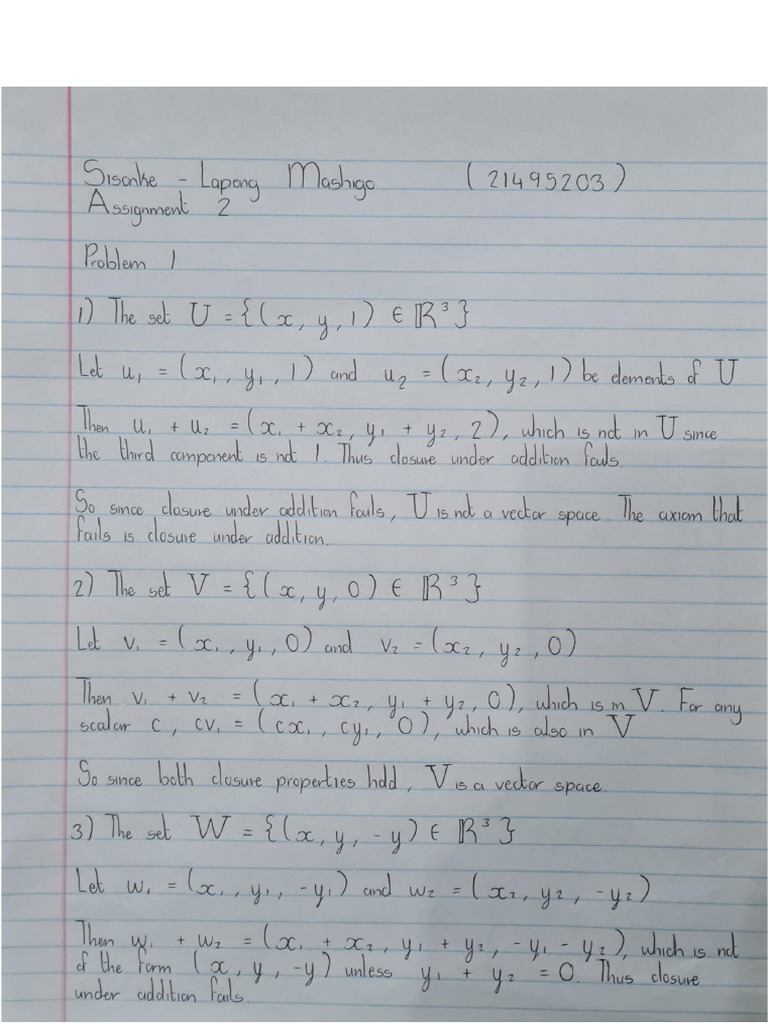 Sisonke - Lapeng Mashigo (21495203)
Assignment 2
Problem 1
1) The set U = {(x, y, 1) ∈ ℝ³}
Let u₁ = (x₁, y₁, 1) and u₂ = (x₂, y₂, 1) be elements of U
Then u₁ + u₂ = (x₁ + x₂, y₁ + y₂, 2), which is not in U since
the third component is not 1. Thus closure under addition fails.
So since closure under addition fails, U is not a vector space. The axiom that
fails is closure under addition.
2) The set V = {(x, y, 0) ∈ ℝ³}
Let v₁ = (x₁, y₁, 0) and v₂ = (x₂, y₂, 0)
Then v₁ + v₂ = (x₁ + x₂, y₁ + y₂, 0), which is in V. For any
scalar c, cv₁ = (cx₁, cy₁, 0), which is also in V
So since both closure properties hold, V is a vector space.
3) The set W = {(x, y, -y) ∈ ℝ³}
Let w₁ = (x₁, y₁, -y₁) and w₂ = (x₂, y₂, -y₂)
Then w₁ + w₂ = (x₁ + x₂, y₁ + y₂, -y₁ - y₂), which is not
of the form (x, y, -y) unless y₁ + y₂ = 0. Thus closure
under addition fails.